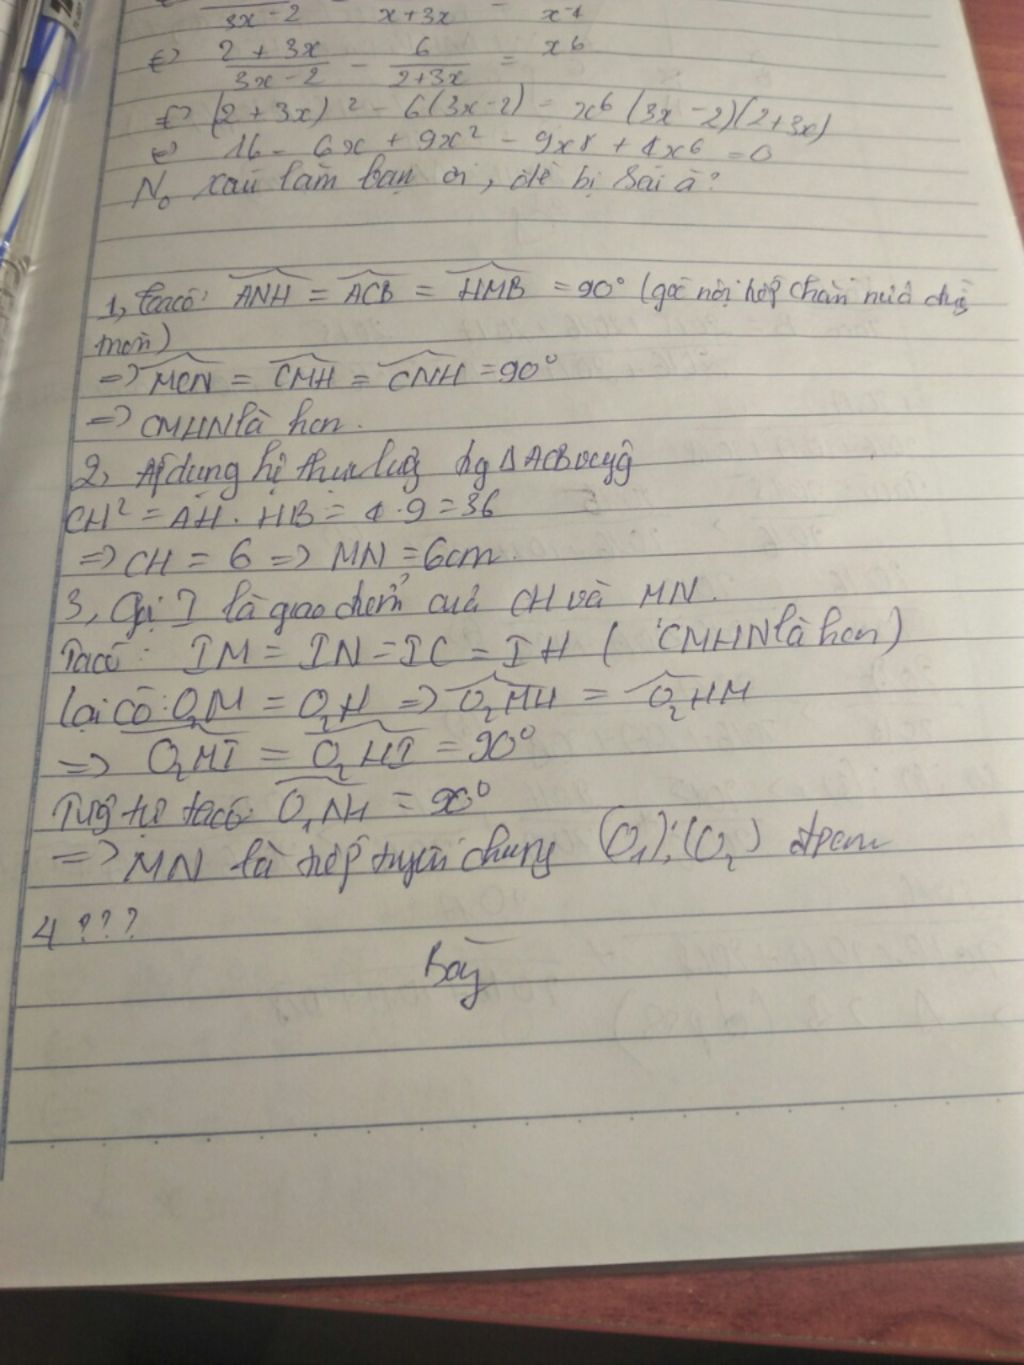 3x-2 x+3x x-1
⇔ 2+3x/3x-2 - 6/2+3x = x6
⇔ (2+3x)² - 6(3x-2) = x⁶(3x-2)(2+3x)
⇔ 16 - 6x + 9x² - 9x8 + 4x6 = 0
No xấu lắm bạn ơi, đề bị sai à?
1, Ta có: ANH = ACB = HMB = 90° (góc nội tiếp chắn nửa đg
tròn)
=> MCN = CMH = CNH = 90°
=> CMHN là hcn.
2, Áp dụng hệ thức lượg tg Δ ACB vuôg
CH² = AH. HB = 4.9 = 36
=> CH = 6 => MN = 6cm.
3, Gọi I là giao điểm của CH và MN.
Ta có: IM = IN = IC = IH ( CMHN là hcn)
Lại có: O₂M = O₂H => O₂MH = O₂HM
=> O₂MI = O₂HI = 90°
Tươg tự ta có: O₁NH = 90°
=> MN là tiếp tuyến chung (O₁);(O₂) đpcm
4 ???